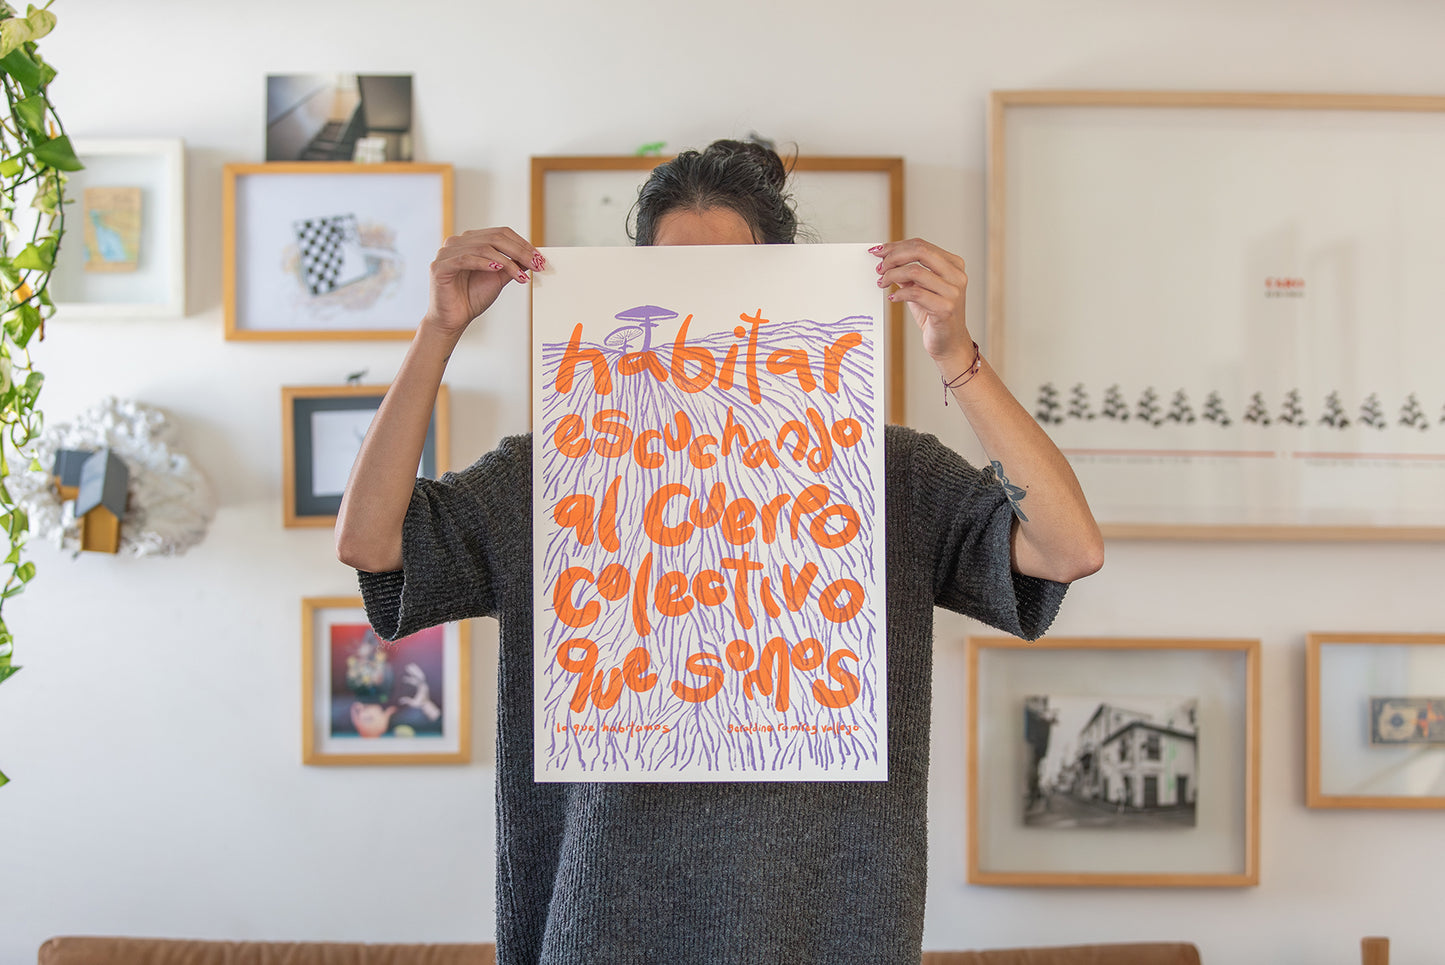 habitar
escuchando
al cuerpo
colectivo
que somos
lo que habitamos
Geraldina Ramírez Vallejo